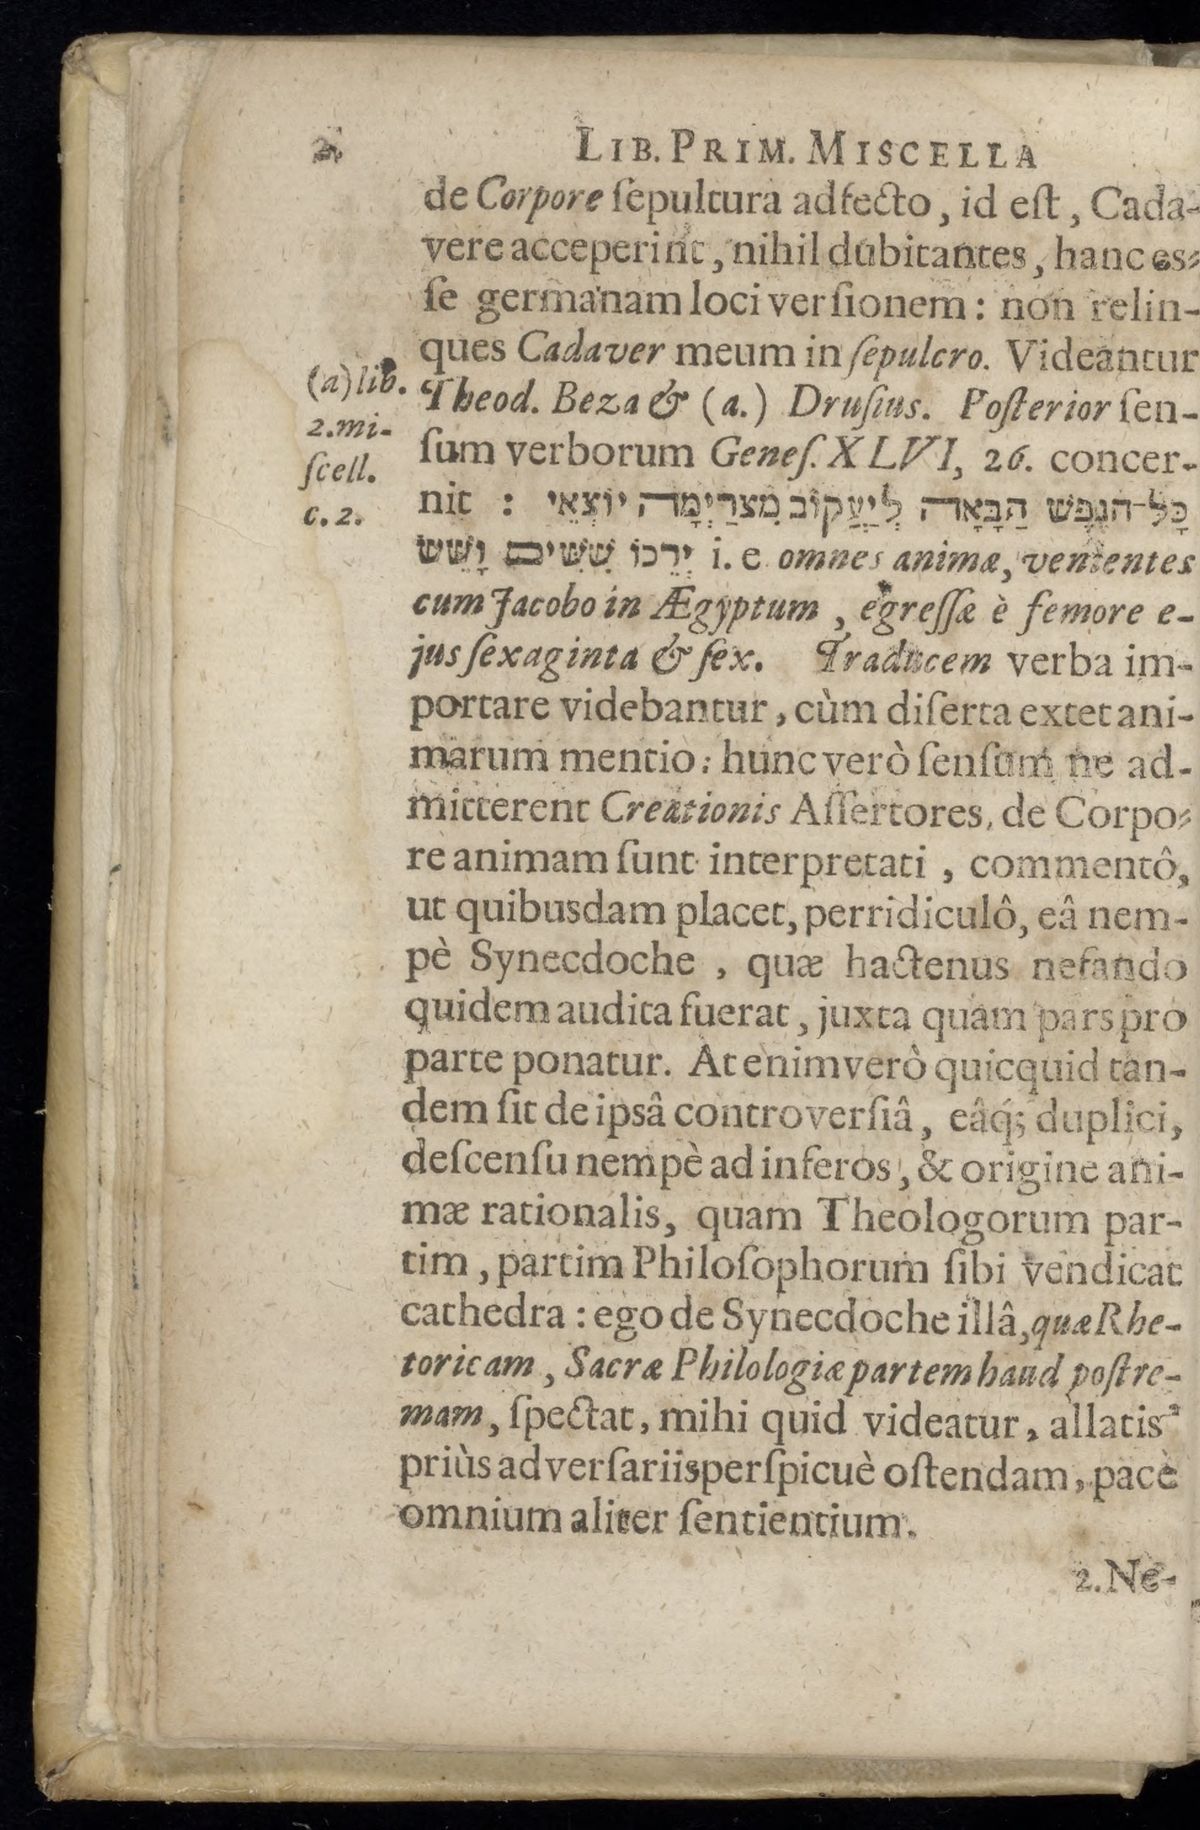 2 LIB. PRIM. MISCELLA
de Corpore ſepultura adfecto, id eſt, Cada-
vere acceperint, nihil dubitantes, hanc es-
ſe germanam loci verſionem: non relin-
ques Cadaver meum in ſepulcro. Videantur
Theod. Beza & (a.) Druſius. Poſterior ſen-
ſum verborum Geneſ. XLVI, 26. concer-
nit : כָּל־הַנֶּפֶשׁ הַבָּאָה לְיַעֲקוֹב מִצרַיְמָה יוֹצְאֵי
יְרֵכוֹ שִׁשִּׁים וָשֵׁשׁ i. e omnes animæ, venientes
cum Jacobo in Ægyptum, egreſſæ è femore e-
jus ſexaginta & ſex. Traducem verba im-
portare videbantur, cùm diſerta extet ani-
marum mentio: hunc verò ſenſum ne ad-
mitterent Creationis Aſſertores, de Corpo-
re animam ſunt interpretati, commentô,
ut quibusdam placet, perridiculô, eâ nem-
pè Synecdoche, quæ hactenus nefando
quidem audita fuerat, juxta quam pars pro
parte ponatur. At enimverò quicquid tan-
dem ſit de ipsâ controverſiâ, eâq́; duplici,
deſcenſu nempè ad inferos, & origine ani-
mæ rationalis, quam Theologorum par-
tim, partim Philoſophorum ſibi vendicat
cathedra: ego de Synecdoche illâ, quæ Rhe-
toricam, Sacræ Philologiæ partem haud poſtre-
mam, ſpectat, mihi quid videatur, allatis
priùs adverſariis perſpicuè oſtendam, pace
omnium aliter ſentientium.
2. Ne-
(a) lib.
2. mi-
ſcell.
c. 2.